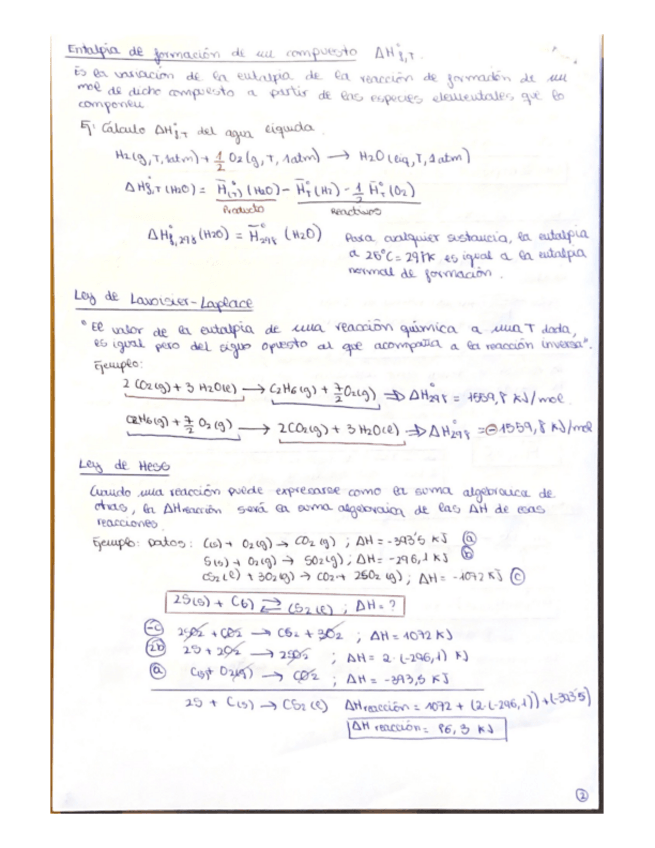 Entalpía de formación de un compuesto ΔH°f,T.
Es la variación de la entalpía de la reacción de formación de un
mol de dicho compuesto a partir de las especies elementales que lo
componen
Ej: Cálculo ΔH°f,T del agua líquida.
H2(g,T,1atm) + 1/2 O2(g,T,1atm) → H2O(liq,T,1atm)
ΔH°f,T(H2O) = H̄°(T)(H2O) - H̄°T(H2) - 1/2 H̄°T(O2)
Producto Reactivos
ΔH°f,298(H2O) = H̄°298(H2O)
Para cualquier sustancia, la entalpía
a 25°C=298K es igual a la entalpía
normal de formación.
Ley de Lavoisier-Laplace
"El valor de la entalpía de una reacción química a una T dada,
es igual pero del signo opuesto al que acompaña a la reacción inversa".
Ejemplo:
2CO2(g) + 3H2O(l) → C2H6(g) + 7/2 O2(g) ⇒ ΔH°298 = 1559,8 kJ/mol.
C2H6(g) + 7/2 O2(g) → 2CO2(g) + 3H2O(l) ⇒ ΔH°298 = -1559,8 kJ/mol
Ley de Hess
Cuando una reacción puede expresarse como la suma algebraica de
otras, la ΔHreacción será la suma algebraica de las ΔH de esas
reacciones.
Ejemplo: Datos: C(s) + O2(g) → CO2(g) ; ΔH = -393'5 kJ (a)
S(s) + O2(g) → SO2(g) ; ΔH = -296,1 kJ (b)
CS2(l) + 3O2(g) → CO2 + 2SO2(g) ; ΔH = -1072 kJ (c)
2S(s) + C(s) ⇄ CS2(l) ; ΔH = ?
(-c) 2SO2 + CO2 → CS2 + 3O2 ; ΔH = 1072 kJ
(2b) 2S + 2O2 → 2SO2 ; ΔH = 2·(-296,1) kJ
(a) C(s) + O2(g) → CO2 ; ΔH = -393,5 kJ
2S + C(s) → CS2(l) ΔHreacción = 1072 + (2·(-296,1)) + (-393'5)
ΔH reacción = 86,3 kJ
2